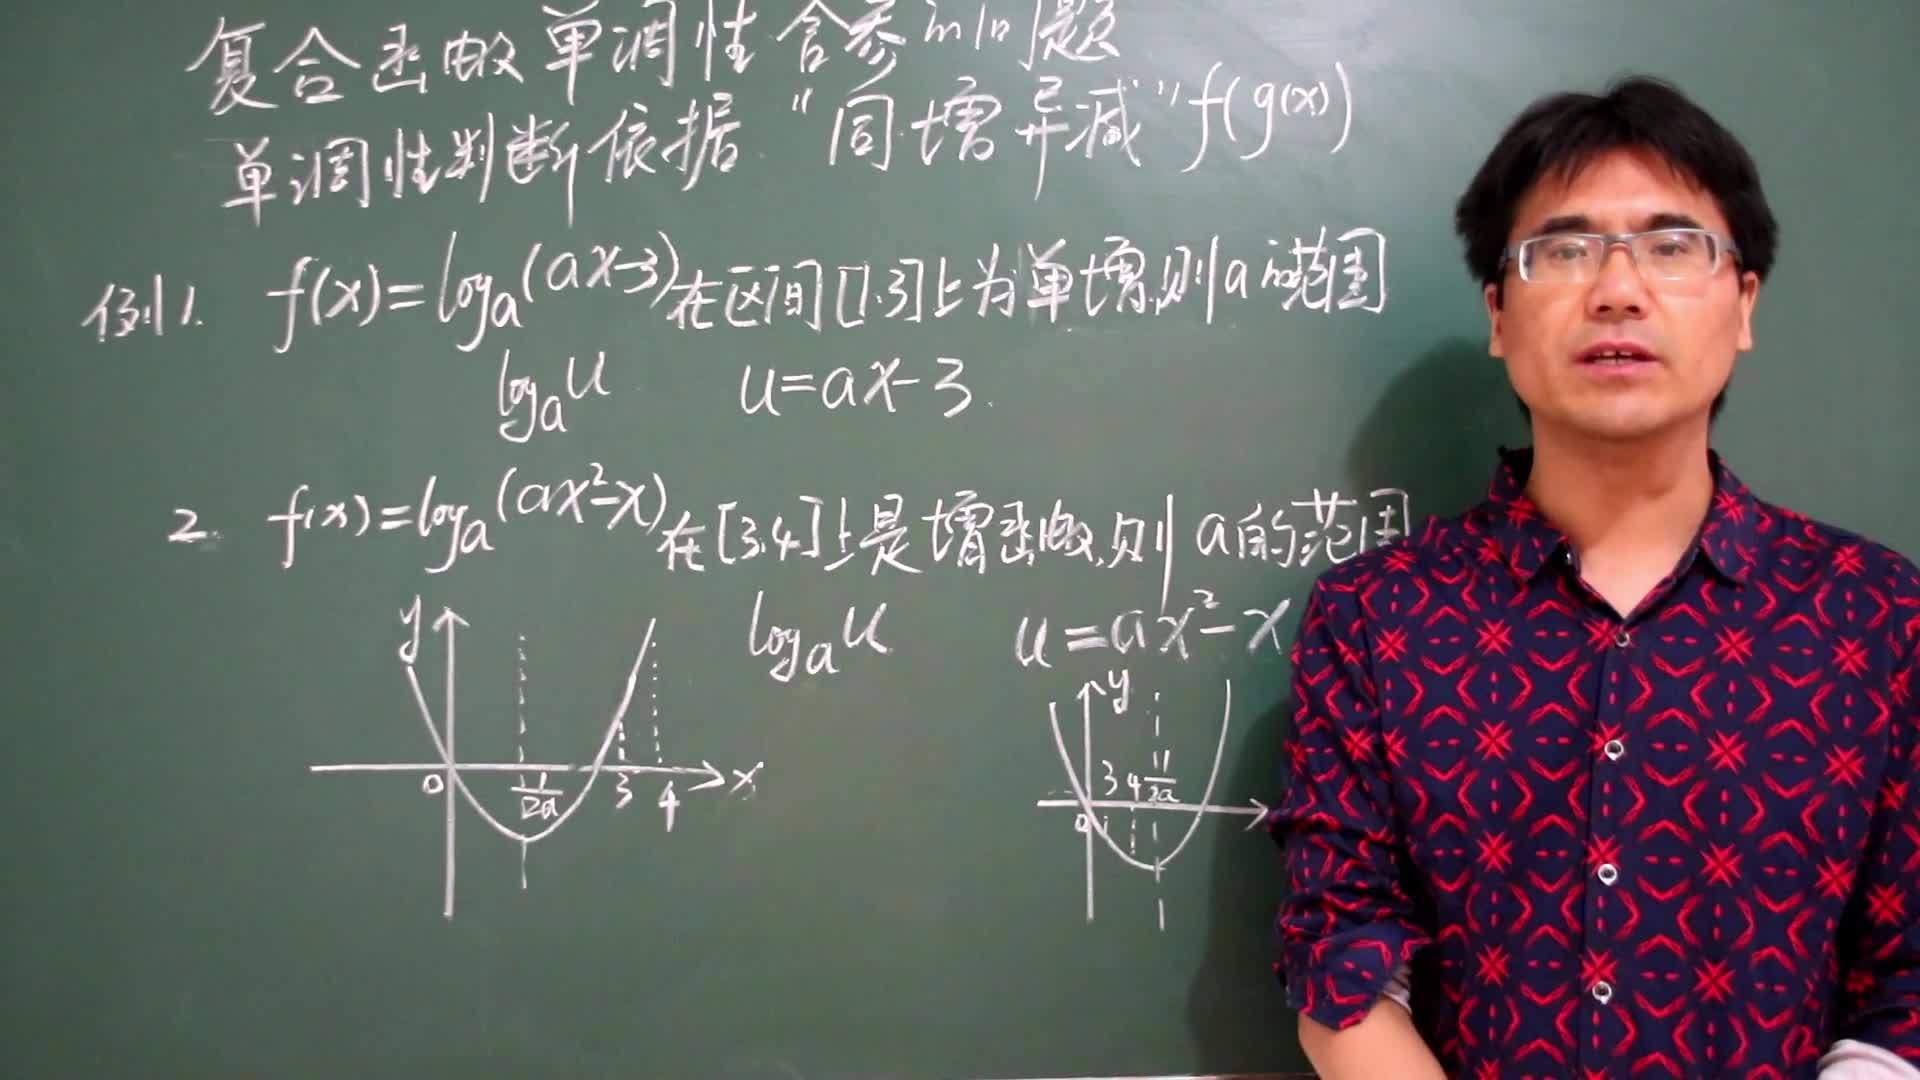 复合函数单调性含参的问题
单调性判断依据 "同增异减" f(g(x))
例1. f(x)=logₐ(ax-3)在区间[1.3]上为单增,则a的范围
logₐu u=ax-3.
2. f(x)=logₐ(ax²-x)在[3.4]上是增函数,则a的范围
logₐu u=ax²-x
y
0 1/2a 3 4 x
y
3 4 1/2a
0